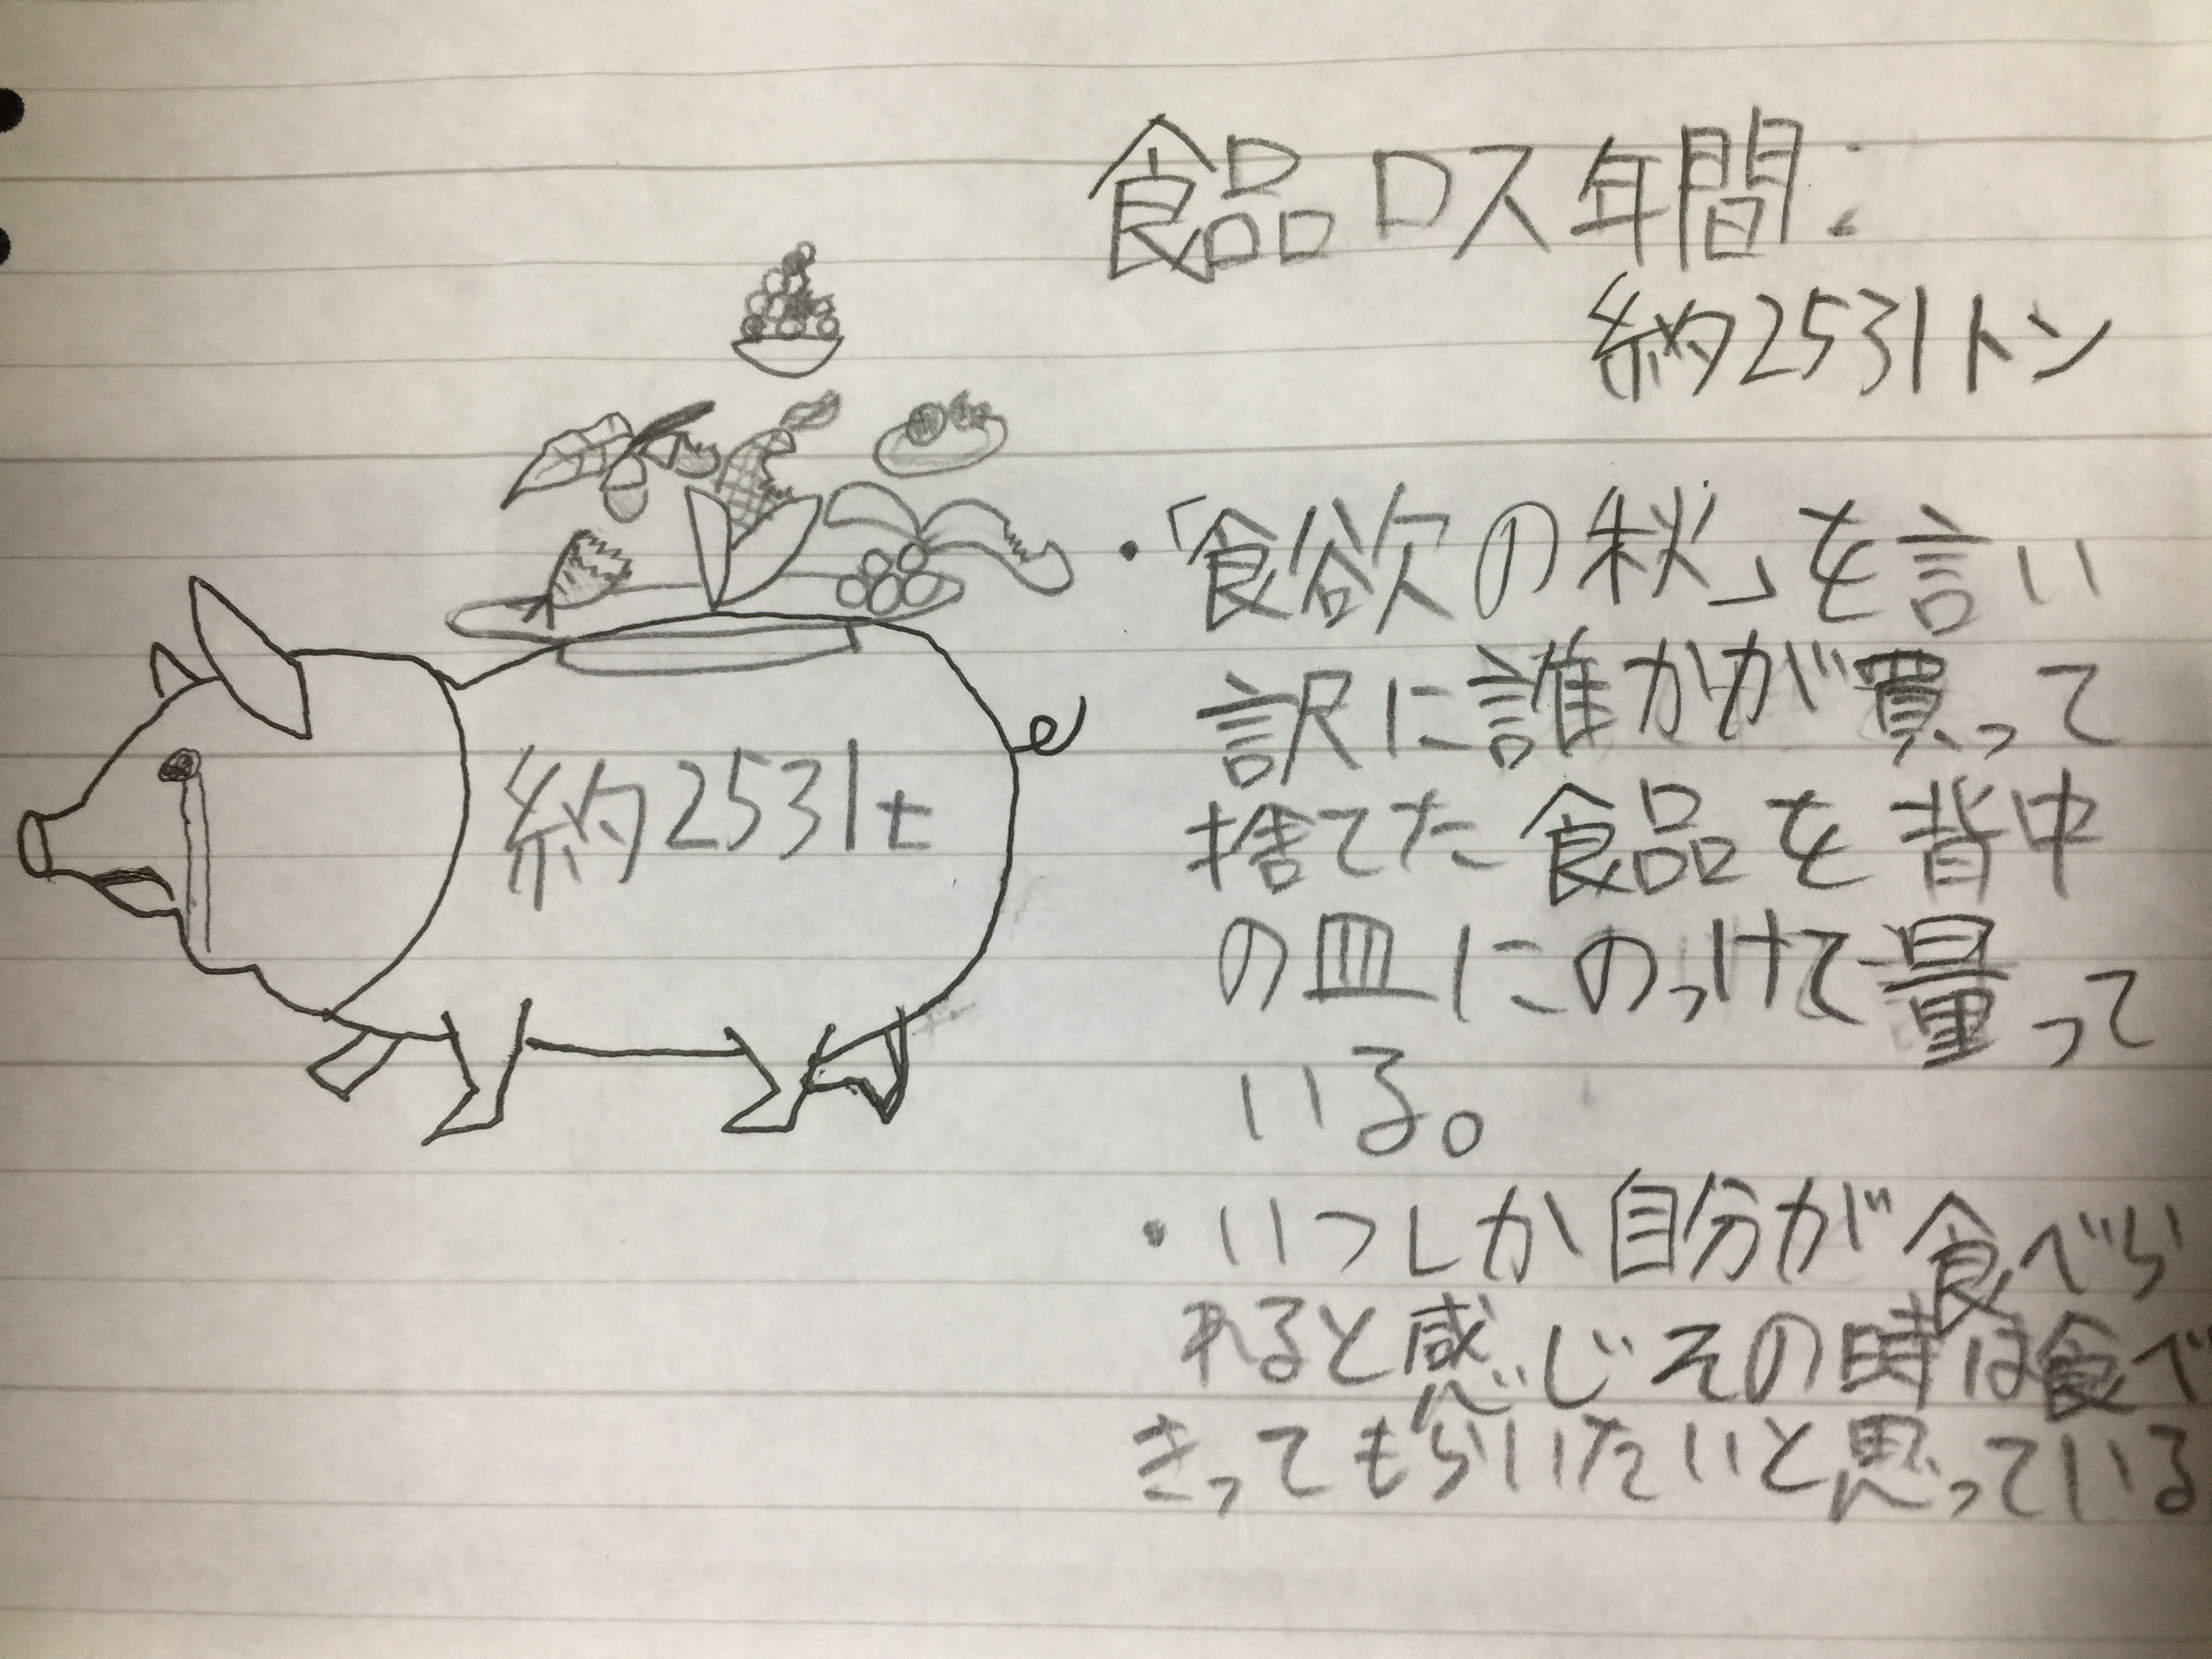 食品ロス年間:
約2531トン
・「食欲の秋」を言い
訳に誰かが買って
捨てた食品を背中
の皿にのっけて量って
いる。
・いつしか自分が食べら
れると感じその時は食べ
きってもらいたいと思っている
約2531t